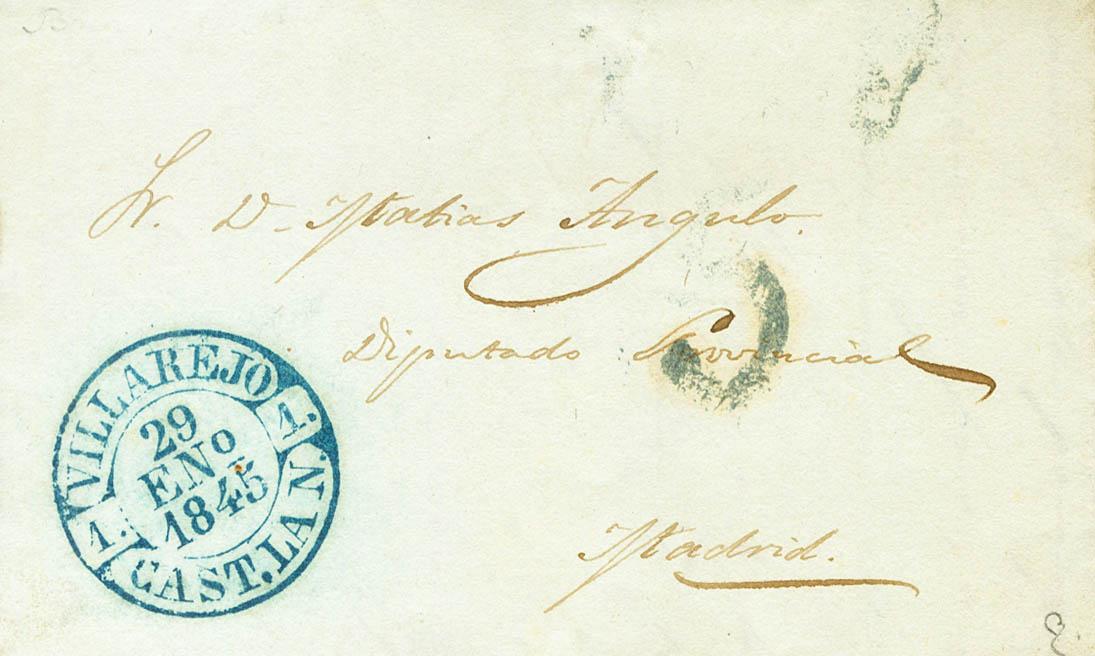 Sr. D. Matias Angulo.
Diputado Provincial
Madrid.
VILLAREJO
1.
29
ENO
1845
1.
CAST. LA N.